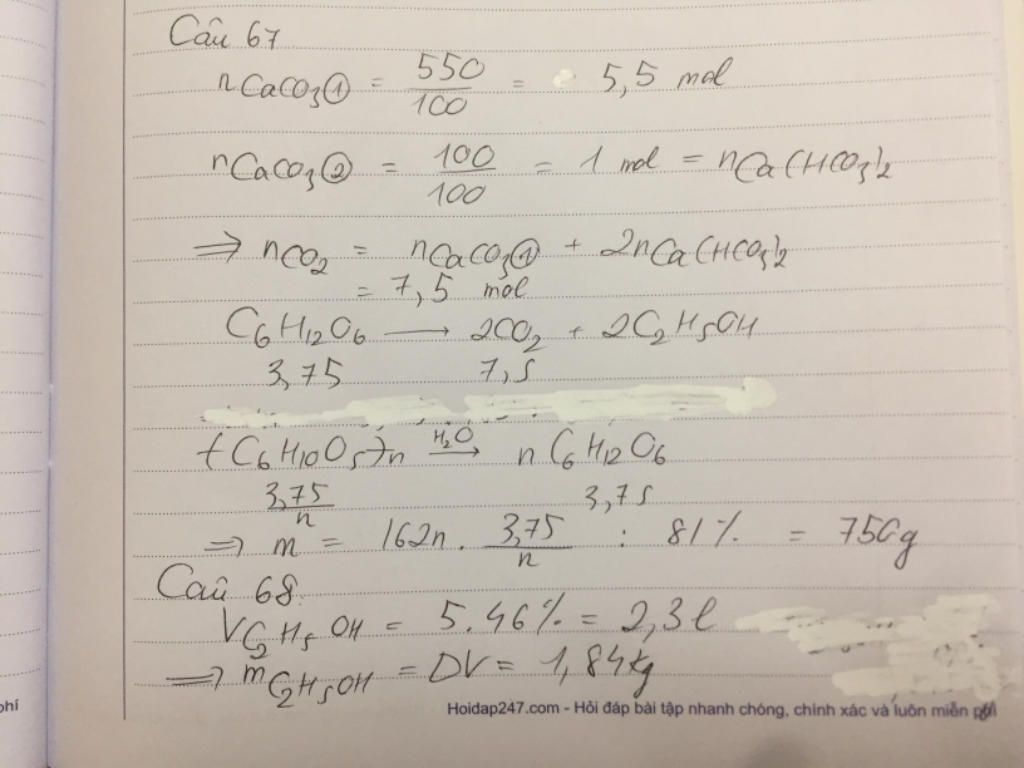 Câu 67
nCaCO3① = 550/100 = 5,5 mol
nCaCO3② = 100/100 = 1 mol = nCa(HCO3)2
⇒ nCO2 = nCaCO3① + 2nCa(HCO3)2
= 7,5 mol
C6H12O6 → 2CO2 + 2C2H5OH
3,75 7,5
(C6H10O5)n H2O→ n C6H12O6
3,75/n 3,75
⇒ m = 162n . 3,75/n : 81% = 750g
Câu 68.
VC2H5OH = 5.46% = 2,3l
⇒ mC2H5OH = DV = 1,84kg
Hoidap247.com - Hỏi đáp bài tập nhanh chóng, chính xác và luôn miễn phí
phí